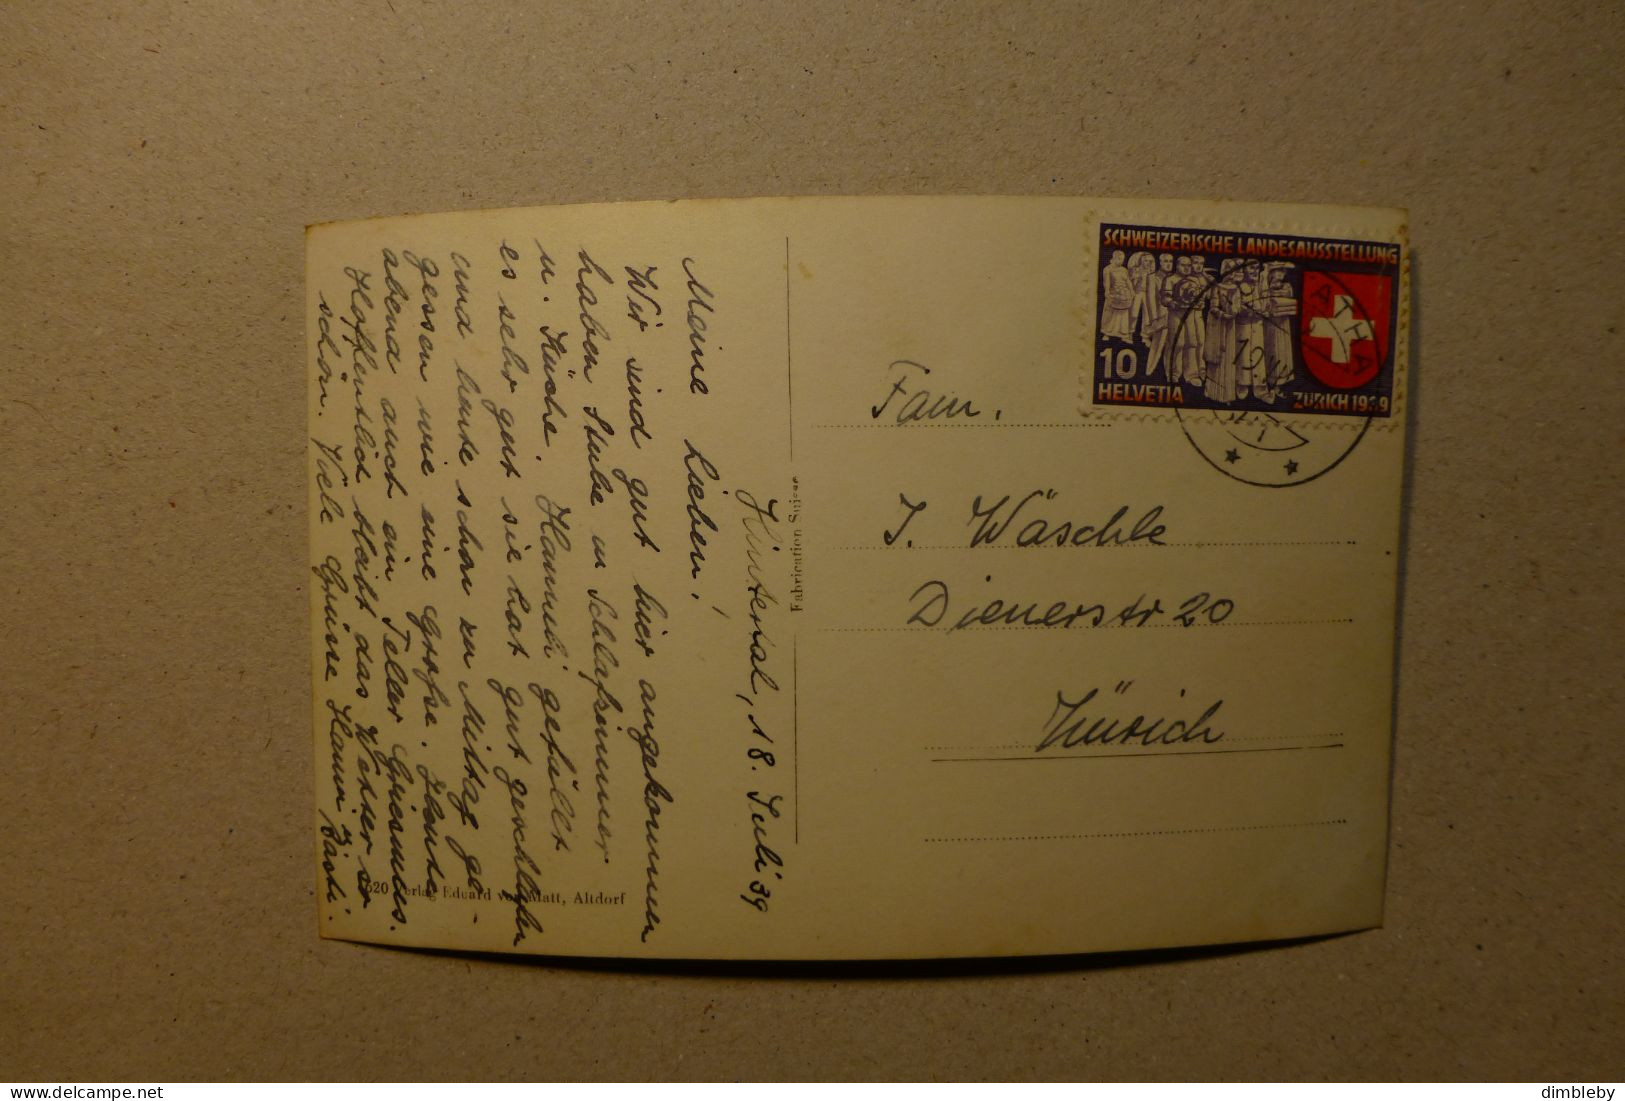 Hintertal, 18. Juli 39
Meine Lieben!
Wir sind gut hier angekommen
haben Stube u Schlafzimmer
u. Küche. Hanneli gefällt
es sehr gut sie hat gut geschlafen
und heute schon zu Mittag ge-
gessen wie eine große. Heute
abend auch ein Teller Griesmues.
Hoffentlich bleibt das Wetter so
schön. Viele Grüsse Hanni
520 Verlag Eduard von Matt, Altdorf
Fabrication Suisse
SCHWEIZERISCHE LANDESAUSSTELLUNG
10
HELVETIA
ZÜRICH 1939
Fam.
J. Wäschle
Dienerstr 20
Zürich
delcampe.net
dimbleby